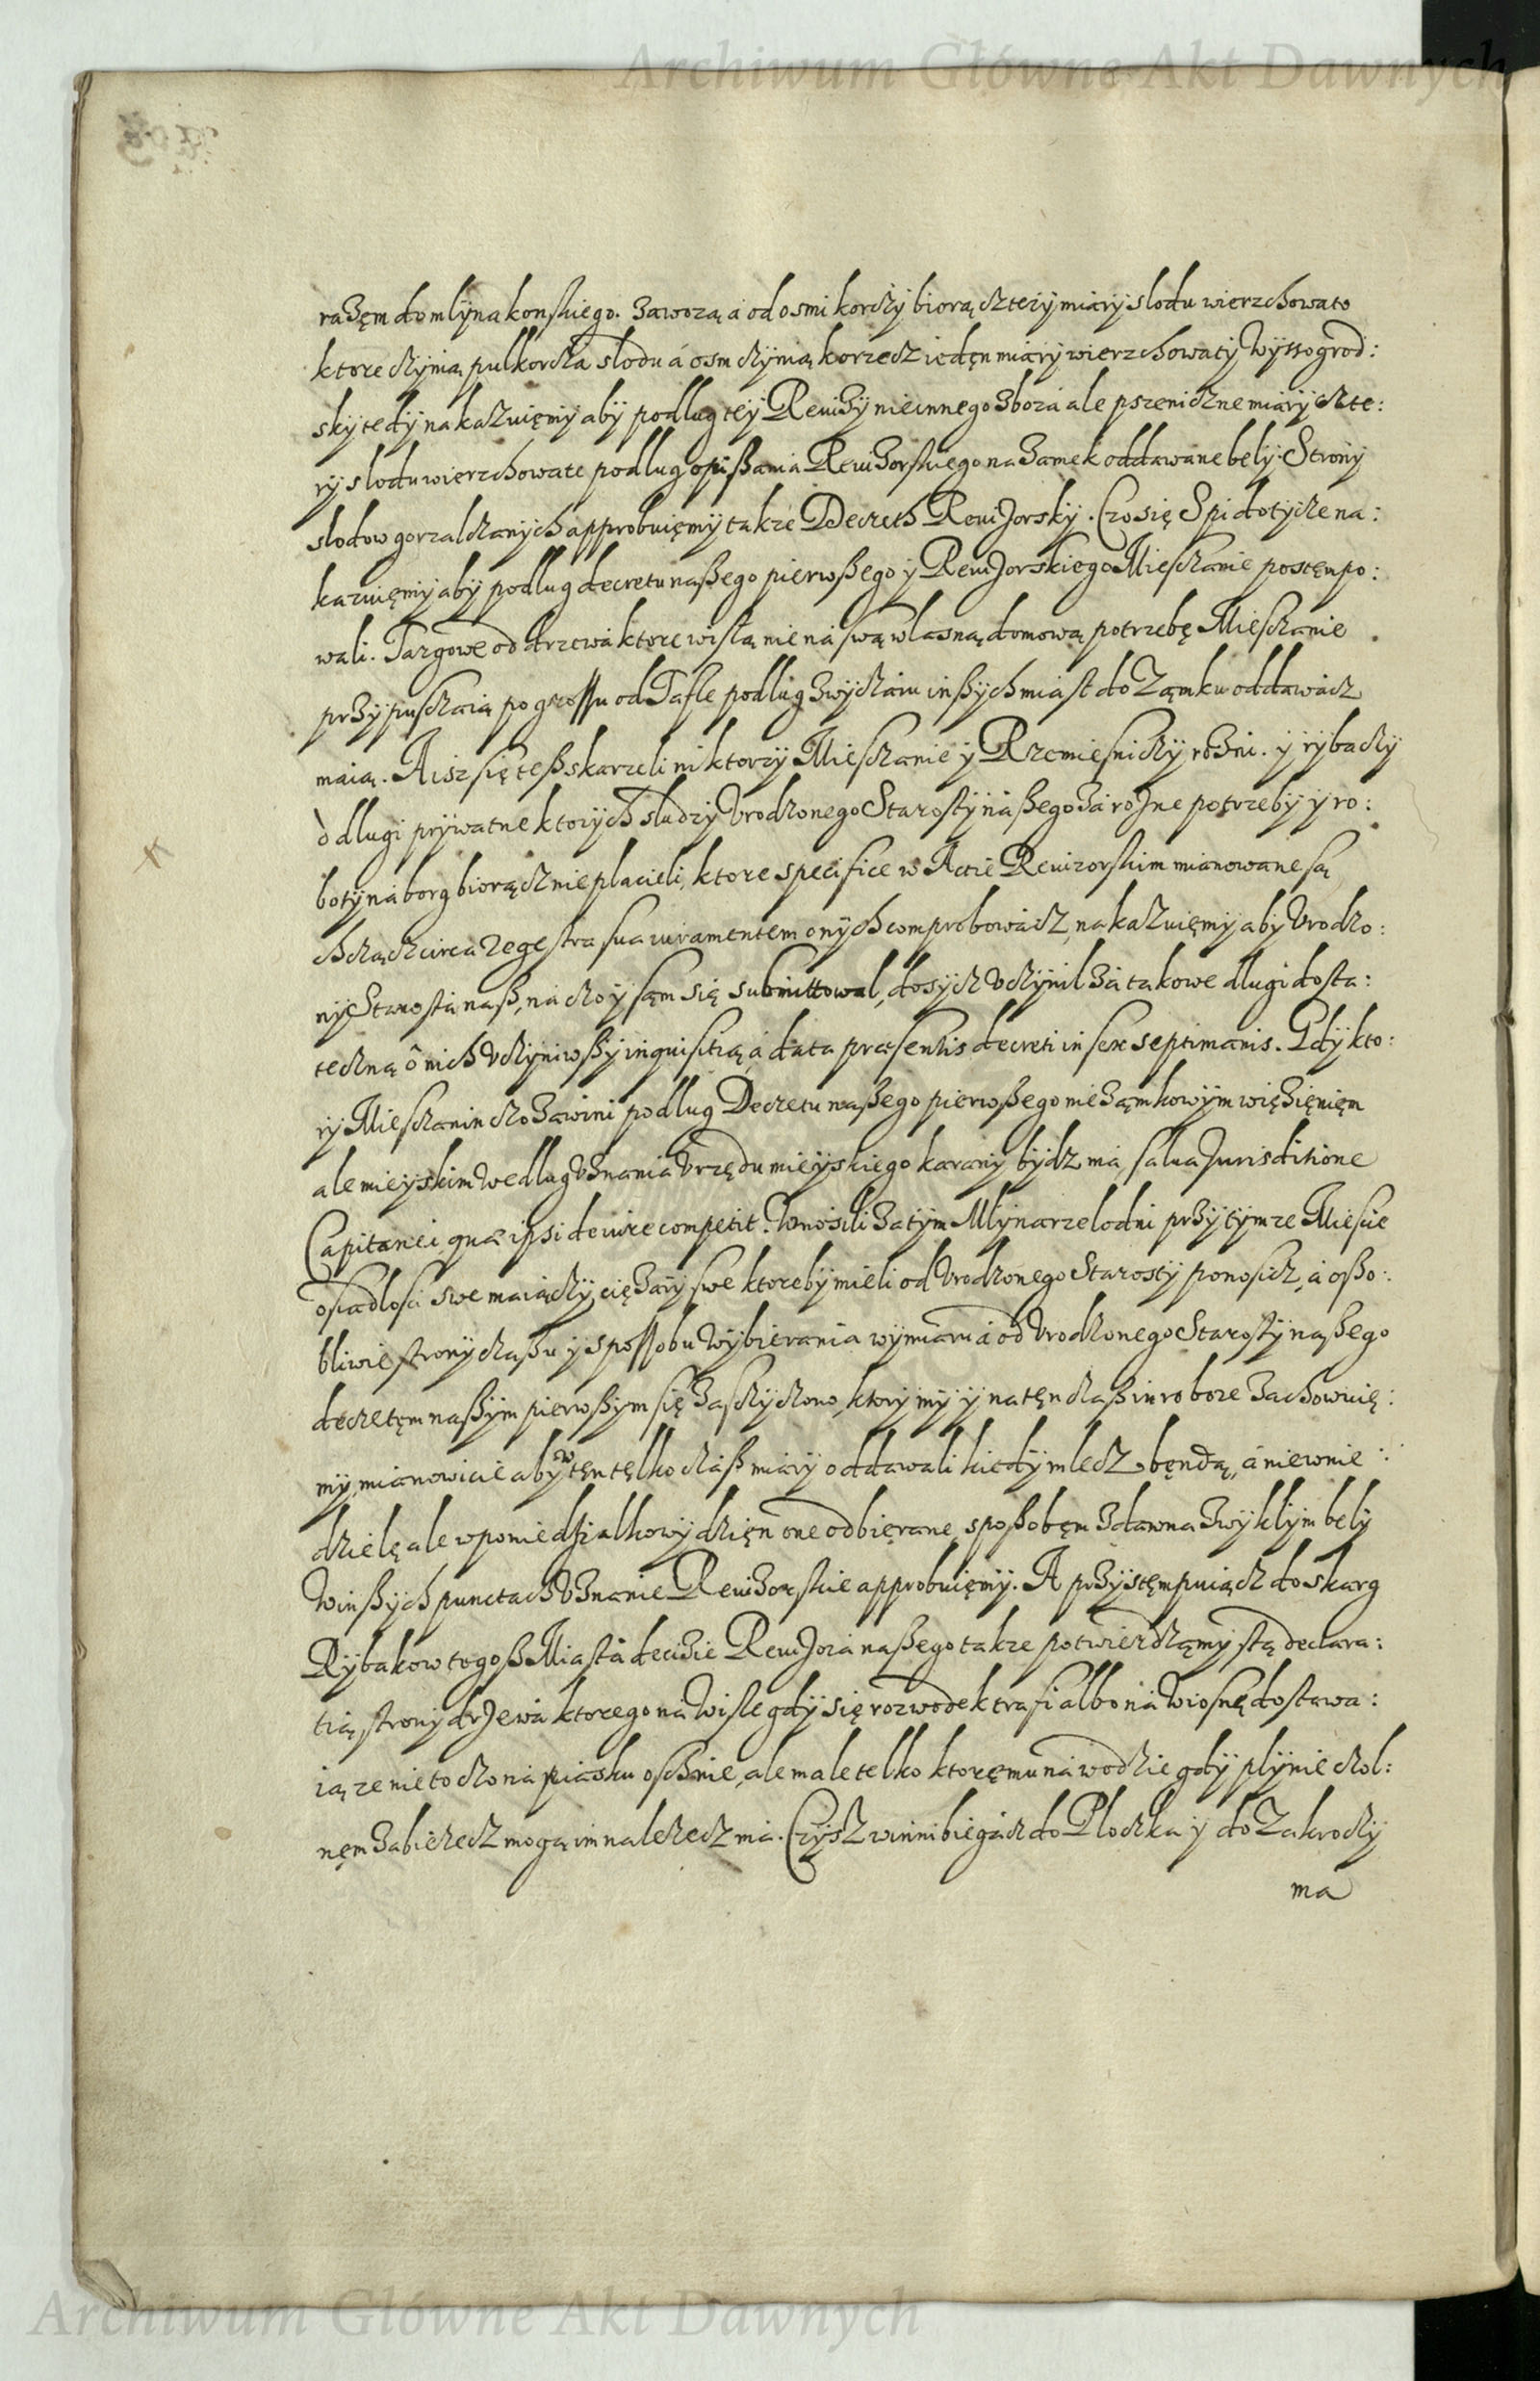 Archiwum Główne Akt Dawnych
razęm do mlyna konskiego. zawozą a od osmi korczy biorą cztery miary slodu wierzchowato
ktore czynią pulkorcza slodu á osm czynią korzecz iedęn miary wierzchowaty Wyssogrod:
sky tedy nakazuięmy aby podlug tey Reuizy nieinnego zboza ale pszeniczne miary czte:
ry slodu wierzchowate podlug opißania Reuizorskiego na zamek oddawane bely. Strony
slodow gorzalczanych approbuięmy takze Decreth Reuizorsky. Czo się Spi dotycze na:
kazuięmy aby podlug decretu naßego pierwßego y Reuizorskiego Miesczanie postęmpo:
wali. Targowe od drzewa ktore wislą nie ná swą wlasną domową potrzebę Miesczanie
przypusczaią po grossu od Tafle podlug zwyczaiu inßych miast do Zamku oddawácz
maią. A isz się teß skarzeli niktorzy Miesczanie y Rzemiesniczy rozni. y rybaczy
ò dlugi prywatne ktorych sludzy Urodzonego Starosty naßego zá rozne potrzeby y ro:
boty ná borg biorącz nie placieli, ktore specifice w Actie Reuizorskim mianowane są
chcząc circa regestra sua iuramentem onych comprobowácz, nakazuięmy aby Urodzo:
ny Starosta naß, ná czo y sąm się submittowal, dosycz uczynil zá takowe dlugi dosta:
teczną o nich uczyniwßy inquisitią, á data præsentis decreti in sex septimanis. Gdy kto:
ry Miesczanin czo zawini podlug Decretu naßego pierwßego nie zamkowym więzięnięm
ale mieyskim wedlug uznania Urzędu mieyskiego karany bydz má, salua Jurisditione
Capitanei, quæ ipsi de iure competit. Wnosili zatym Mlynarze lodni przy tymze Miescie
osiadlosci swe maiączy, cięzary swe ktoreby mieli od Urodzonego Starosty ponosicz, á oßo:
bliwie strony czaßu y spossobu wybierania wymiaru á od Urodzonego Starosty naßego
decretęm naßym pierwßym się zasczyczono, ktory my y na tęn czaß in robore zachowuię:
my, mianowicie aby w tęn tęlko czáß miary oddawali kiedy mlecz będą, á nie w nie:
dzielę ale w poniedzialkowy dzięn one odbięrane, spoßobęm zdawna zwyklym bely
W inßych punctach uznanie Reuizorskie approbuięmy. A przystęmpuiącz do skarg
Rybakow tegoß Miasta decizie Reuizora naßego takze potwierdzamy s tą declara:
tią, strony drzewa ktorego na Wisle gdy się rozwodek trafi albo ná wiosnę dostawa:
ią, ze nie to czo ná piasku oschnie, ale male telko ktoręmu ná wodzie gdy plynie czol:
nęm zabiezecz mogą im nalezecz má. Czysz winni biegácz do Ploczka y do Zakroczy
ma
Archiwum Główne Akt Dawnych